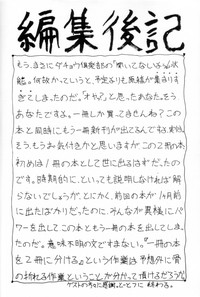 編集後記
もう、まさにダチョウ倶楽部の「聞いてないよ」状
態。何故かっていうと、予定よりも原稿が集まりす
ぎてしまったのだ。「オヤ？」と思ったあなた。もう
あなたですよ。一冊しか買ってませんね？この
本と同時にもう一冊新刊が出てるんです(実は。
もう、もうお気付きかと思いますが、この2冊の本、
初めは1冊の本として世に出るはずだったの
です。時期的に、といっても説明しなければ解
らないでしょうが、とにかく、前回の本が1ヶ月前
に出たばかりだったのに、そんなケ異様にパ
ワーを出してこの本ともう一冊の本を出してしま
たのだ。意味不明の文ですまない。『一冊の本
を2冊に分ける』という作業は予想外に骨
の折れる作業ということが分かって頂けるだろうか。
ゲストの方々に感謝。といって終わる。